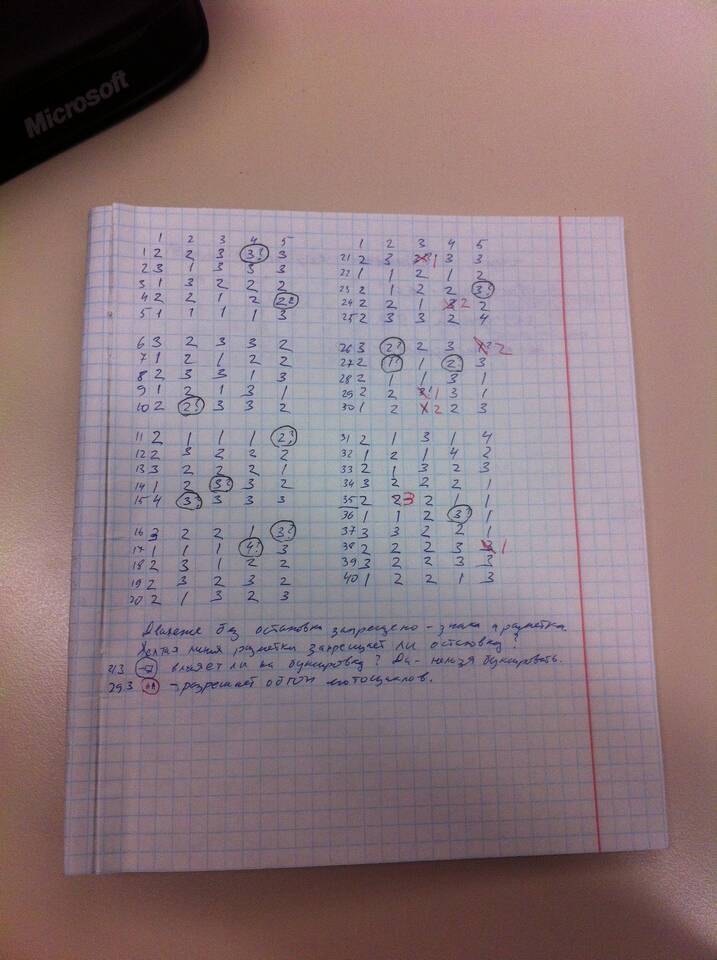 Microsoft
1 2 3 4 5
1 2 2 3 3? 3
2 3 1 3 3 3
3 1 3 2 2 2
4 2 2 1 2 2?
5 1 1 1 1 3
6 3 2 3 3 2
7 1 2 1 2 2
8 2 3 3 1 3
9 1 2 1 3 1
10 2 2? 3 3 2
11 2 1 1 1 2?
12 2 3 2 2 2
13 3 2 2 2 1
14 1 2 3? 3 2
15 4 3? 3 3 3
16 3 2 2 1 3?
17 1 1 1 4? 3
18 2 3 1 2 2
19 2 3 2 3 2
20 2 1 3 2 3
1 2 3 4 5
21 2 3 1 3 3
22 1 1 2 1 2
23 2 1 2 2 3?
24 2 2 1 3 2 2
25 2 3 3 2 4
26 3 2? 2 3 2
27 2 1? 1 2? 3
28 2 1 1 3 1
29 2 2 1 3 1
30 1 2 2 2 3
31 2 1 3 1 4
32 1 2 1 4 2
33 2 1 3 2 3
34 3 2 2 2 1
35 2 2 3 2 1 1
36 1 1 2 3? 1
37 3 3 2 2 1
38 2 2 2 3 3 1
39 3 2 2 3 3
40 1 2 2 1 3
Движение без остановки запрещено - знака и разметка.
Желтая линия разметки запрещает ли остановку?
21.3 влияет ли на буксировку? Да - нельзя буксировать.
29.3 - разрешает обгон мотоциклов.